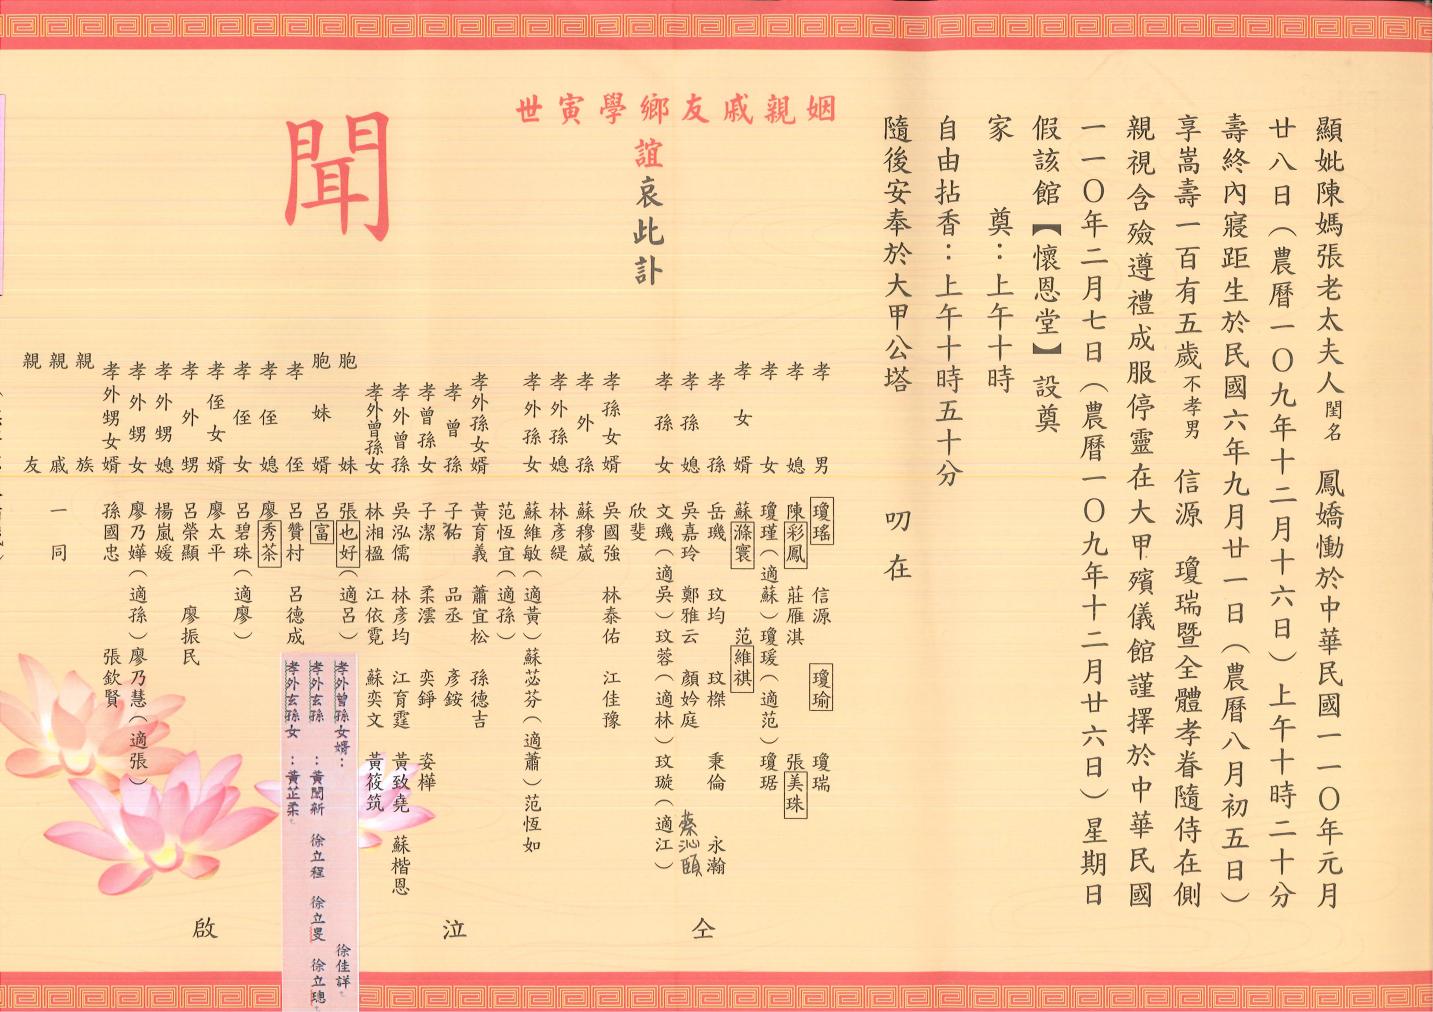 顯妣陳媽張老太夫人閨名 鳳嬌慟於中華民國一一〇年元月
廿八日（農曆一〇九年十二月十六日）上午十時二十分
壽終內寢距生於民國六年九月廿一日（農曆八月初五日）
享嵩壽一百有五歲不孝男 信源 瓊瑞暨全體孝眷隨侍在側
親視含殮遵禮成服停靈在大甲殯儀館謹擇於中華民國
一一〇年二月七日（農曆一〇九年十二月廿六日）星期日
假該館【懷恩堂】設奠
家 奠：上午十時
自由拈香：上午十時五十分
隨後安奉於大甲公塔 叨在
姻親戚友鄉學寅世
誼哀此訃
聞
孝男 瓊瑤 信源 瓊瑜 瓊瑞
孝媳 陳彩鳳 莊雁淇 張美珠
孝女 瓊瑾（適蘇）瓊瑗（適范）瓊琚
孝女婿 蘇滌寰 范維祺
孝孫 岳璣 玟均 玟傑 秉倫 永瀚
孝孫媳 吳嘉玲 鄭雅云 顏妗庭 蔡沁頤
孝孫女 文璣（適吳）玟蓉（適林）玟璇（適江）
欣斐
孝孫女婿 吳國強 林泰佑 江佳豫
孝外孫 蘇穆葳
孝外孫媳 林彥緹
孝外孫女 蘇維敏（適黃）蘇苾芬（適蕭）范恆如
范恆宜（適孫）
孝外孫女婿 黃育義 蕭宜松 孫德吉
孝曾孫 子祐 品丞 彥銨
孝曾孫女 子潔 柔澐 奕錚 姿樺
孝外曾孫 吳泓儒 林彥均 江育霆 黃致堯 蘇楷恩
孝外曾孫女 林湘楹 江依霓 蘇奕文 黃筱筑
胞妹 張也好（適呂）
胞妹婿 呂富
孝侄 呂贊村 呂德成
孝侄媳 廖秀茶
孝侄女 呂碧珠（適廖）
孝侄女婿 廖太平
孝外甥 呂榮顯 廖振民
孝外甥媳 楊嵐媛
孝外甥女 廖乃嬅（適孫）廖乃慧（適張）
孝外甥女婿 孫國忠 張欽賢
親族
親戚 一同
親友
孝外曾孫女婿： 徐佳詳
孝外玄孫：黃閎新 徐立程 徐立旻 徐立璁
孝外玄孫女：黃芷柔
仝 泣 啟